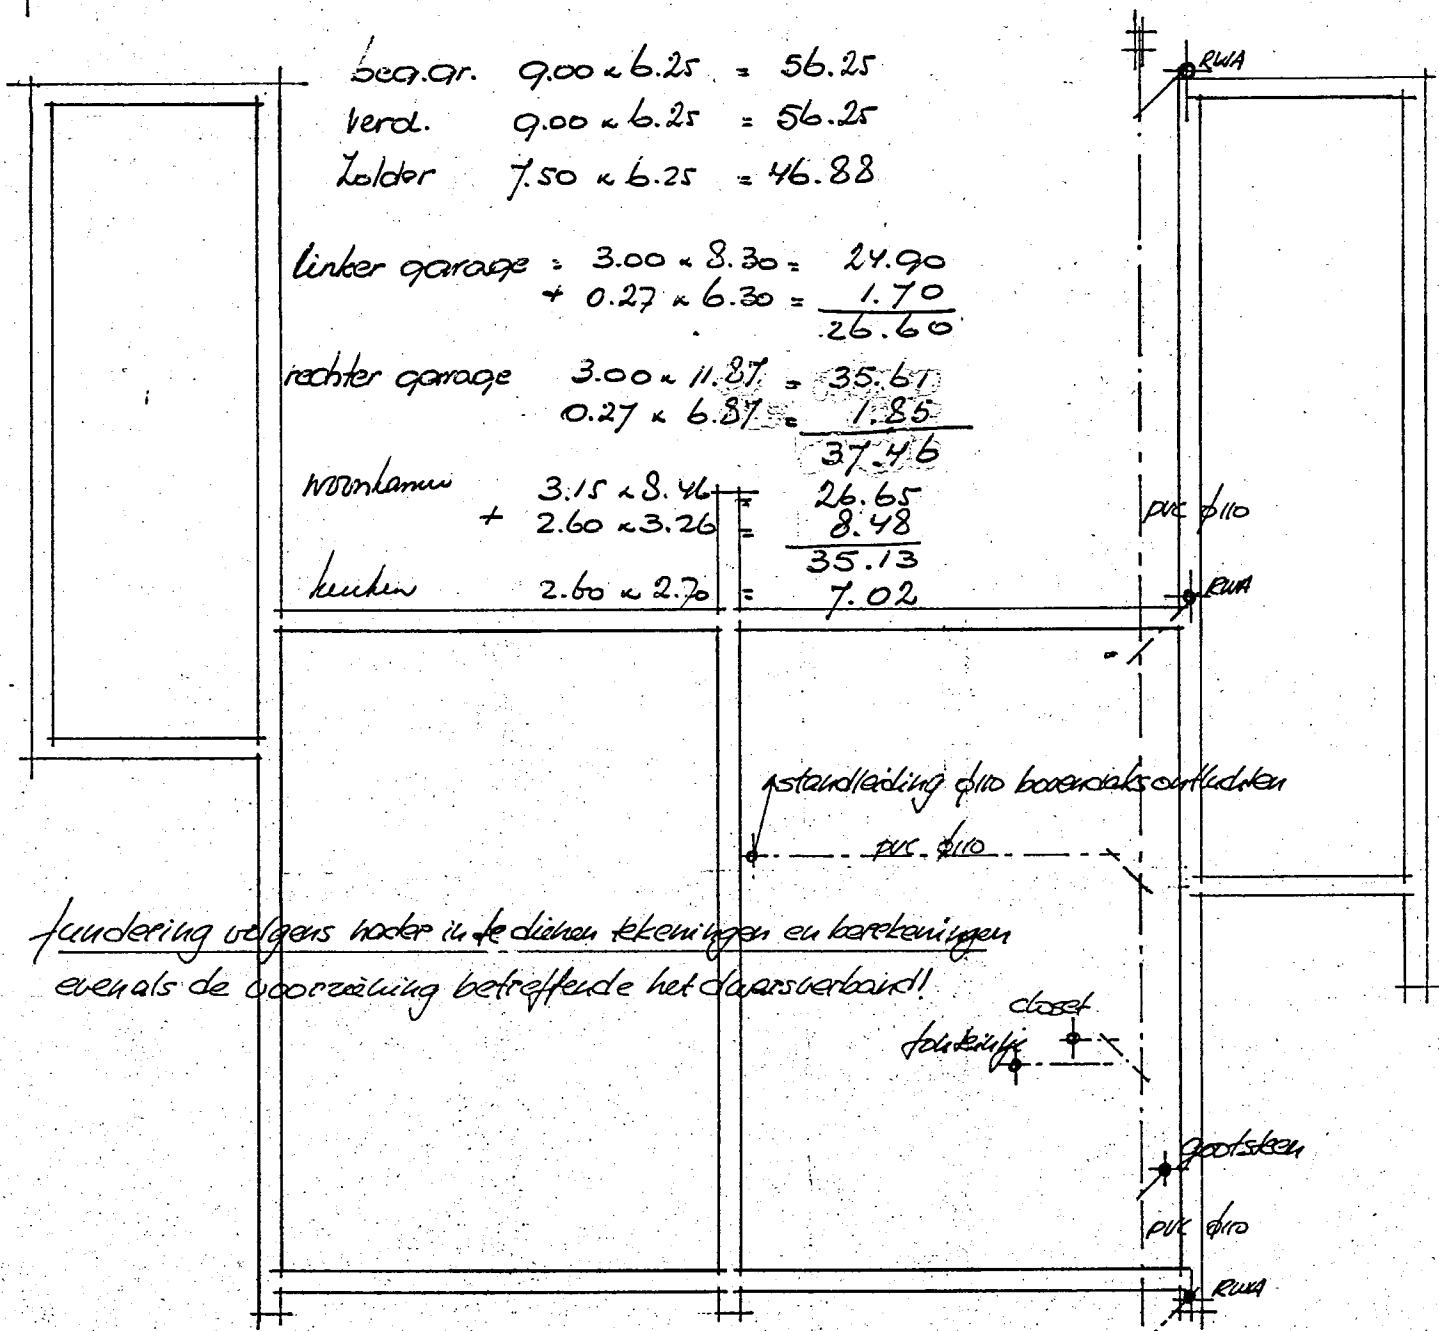 beg.gr. 9.00 x 6.25 = 56.25
verd. 9.00 x 6.25 = 56.25
Zolder 7.50 x 6.25 = 46.88
linker garage = 3.00 x 8.30 = 24.90
+ 0.27 x 6.30 = 1.70
26.60
rechter garrage 3.00 x 11.87 = 35.61
0.27 x 6.87 = 1.85
37.46
woonkamer 3.15 x 8.46 = 26.65
+ 2.60 x 3.26 = 8.48
35.13
keuken 2.60 x 2.70 = 7.02
RWA
pvc ϕ110
RWA
standleiding ϕ110 bovendaks ontluchten
pvc. ϕ110
fundering volgens nader in te dienen tekeningen en berekeningen
evenals de voorziening betreffende het dwarsverband!
closet
fonteintje
gootsteen
pvc ϕ110
RWA